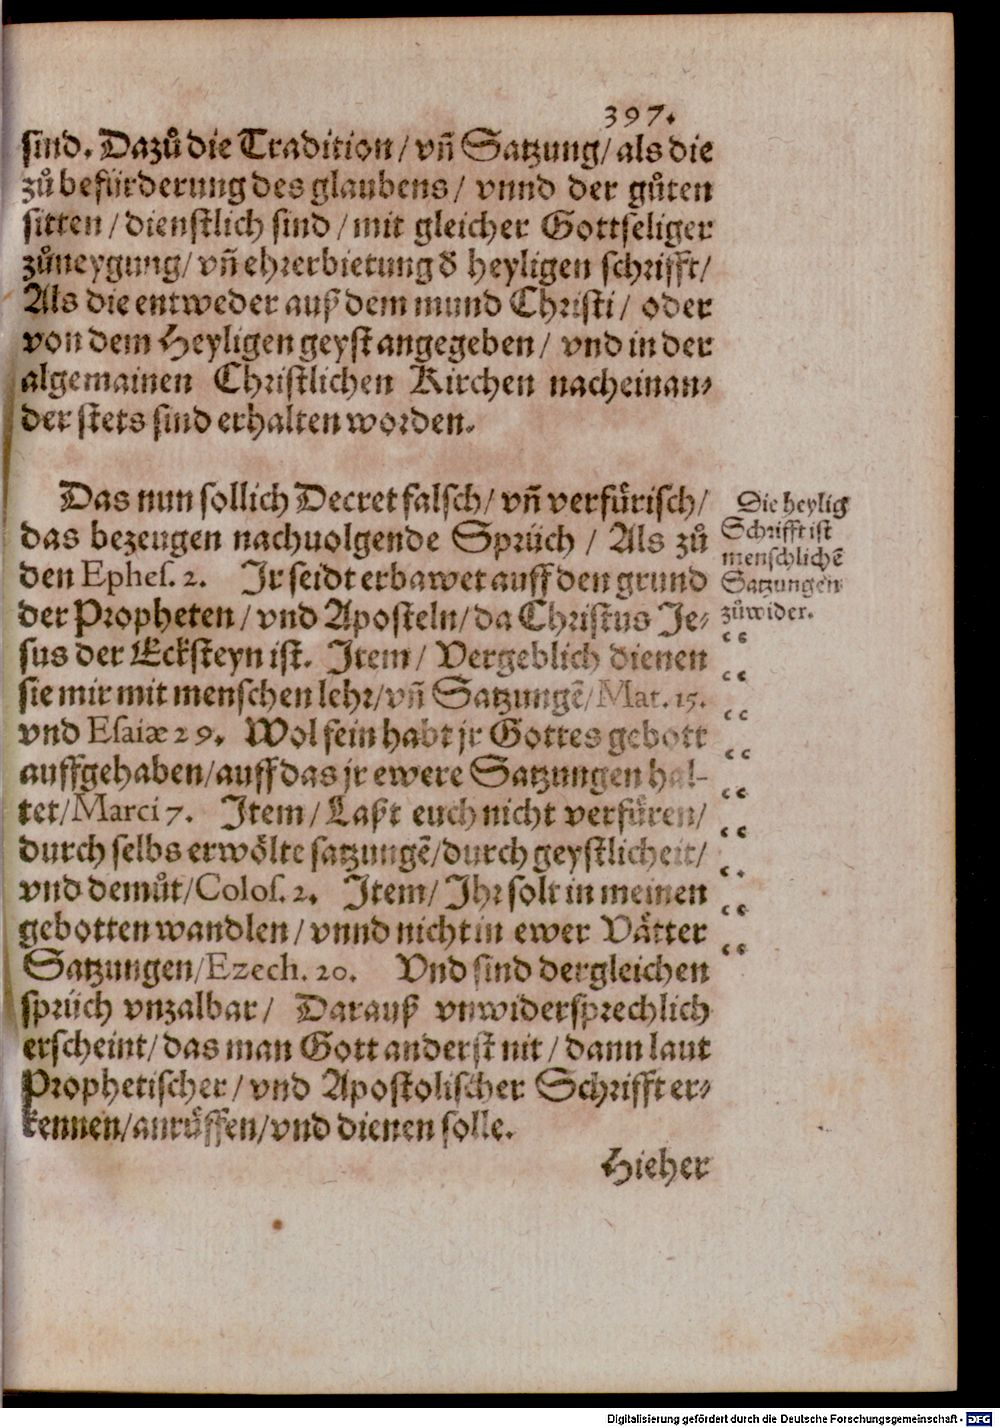 397.
sind. Dazů die Tradition / vñ Satzung / als die
zů befürderung des glaubens / vnnd der gůten
sitten / dienstlich sind / mit gleicher Gottseliger
zůneygung / vñ ehrerbietung d̕ heyligen schrifft /
Als die entweder auß dem mund Christi / oder
von dem Heyligen geyst angegeben / vnd in der
algemainen Christlichen Kirchen nacheinan⸗
der stets sind erhalten worden.
Das nun sollich Decret falsch / vñ verfůrisch /
das bezeugen nachuolgende Sprüch / Als zů
den Ephes. 2. Jr seidt erbawet auff den grund
der Propheten / vnd Aposteln / da Christus Je⸗
sus der Ecksteyn ist. Item / Vergeblich dienen
sie mir mit menschen lehr / vñ Satzungē / Mat. 15.
vnd Esaiæ 29. Wol fein habt jr Gottes gebott
auffgehaben / auff das jr ewere Satzungen hal-
tet / Marci 7. Item / Laßt euch nicht verfůren /
durch selbs erwölte satzungē / durch geystlicheit /
vnd demůt / Colos. 2. Item / Ihr solt in meinen
gebotten wandlen / vnnd nicht in ewer Vätter
Satzungen / Ezech. 20. Vnd sind dergleichen
sprüch vnzalbar / Darauß vnwidersprechlich
erscheint / das man Gott anderst nit / dann laut
Prophetischer / vnd Apostolischer Schrifft er⸗
kennen / anrůffen / vnd dienen solle.
Hieher
Die heylig
Schrifft ist
menschlichē
Satzungen
zůwider.
“
“
“
“
“
“
“
“
“
Digitalisierung gefördert durch die Deutsche Forschungsgemeinschaft - DFG